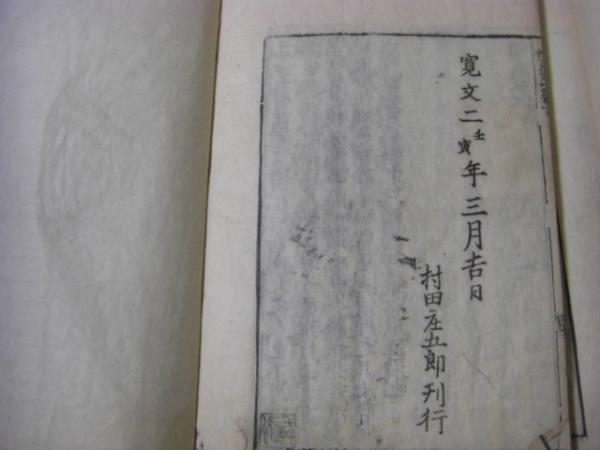 寛文二壬寅年三月吉日
村田庄五郎刊行